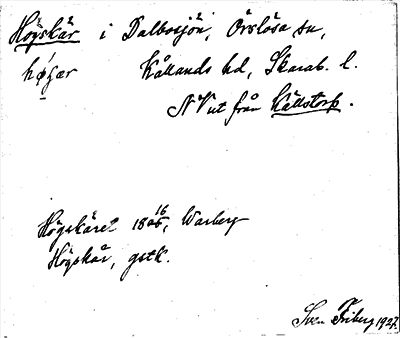 Högskär i Dalbosjön, Örslösa sn,
Kållands hd, Skarab. l.
NV ut från Källstorp.
Högskäret 18 16/05, Warberg
Högskär, gstk.
Sven Friberg 1927.